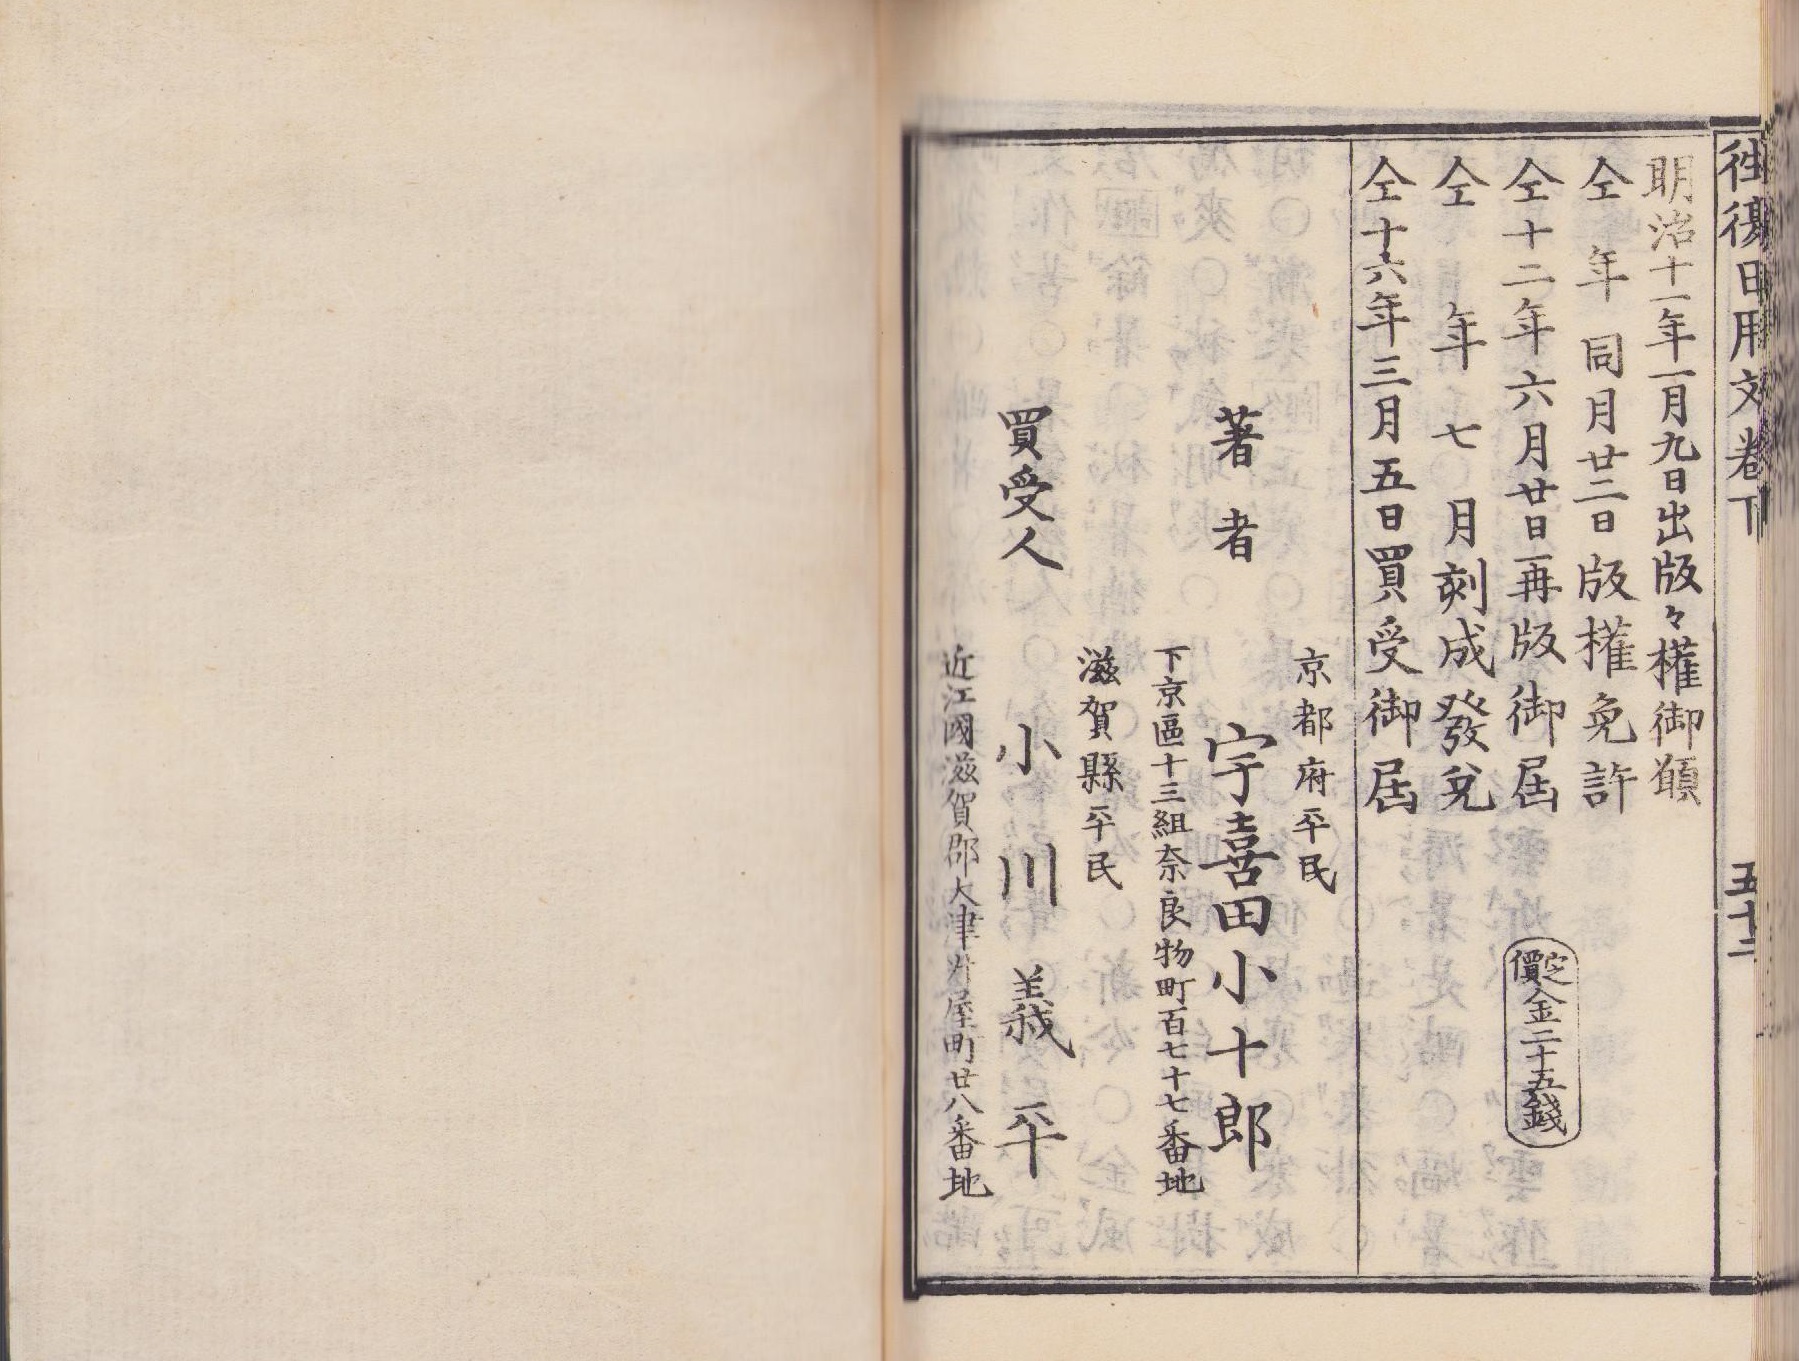 徃復日用文卷下
五十二
明治十一年一月九日出版々權御願
仝年同月廿二日版權免許
仝十二年六月廿日再版御屆
仝年七月刻成發兌
仝十六年三月五日買受御屆
定價金二十五錢
京都府平民
著者 宇喜田小十郎
下京區十三組奈良物町百七十七番地
滋賀縣平民
買受人 小川義平
近江國滋賀郡大津升屋町廿八番地